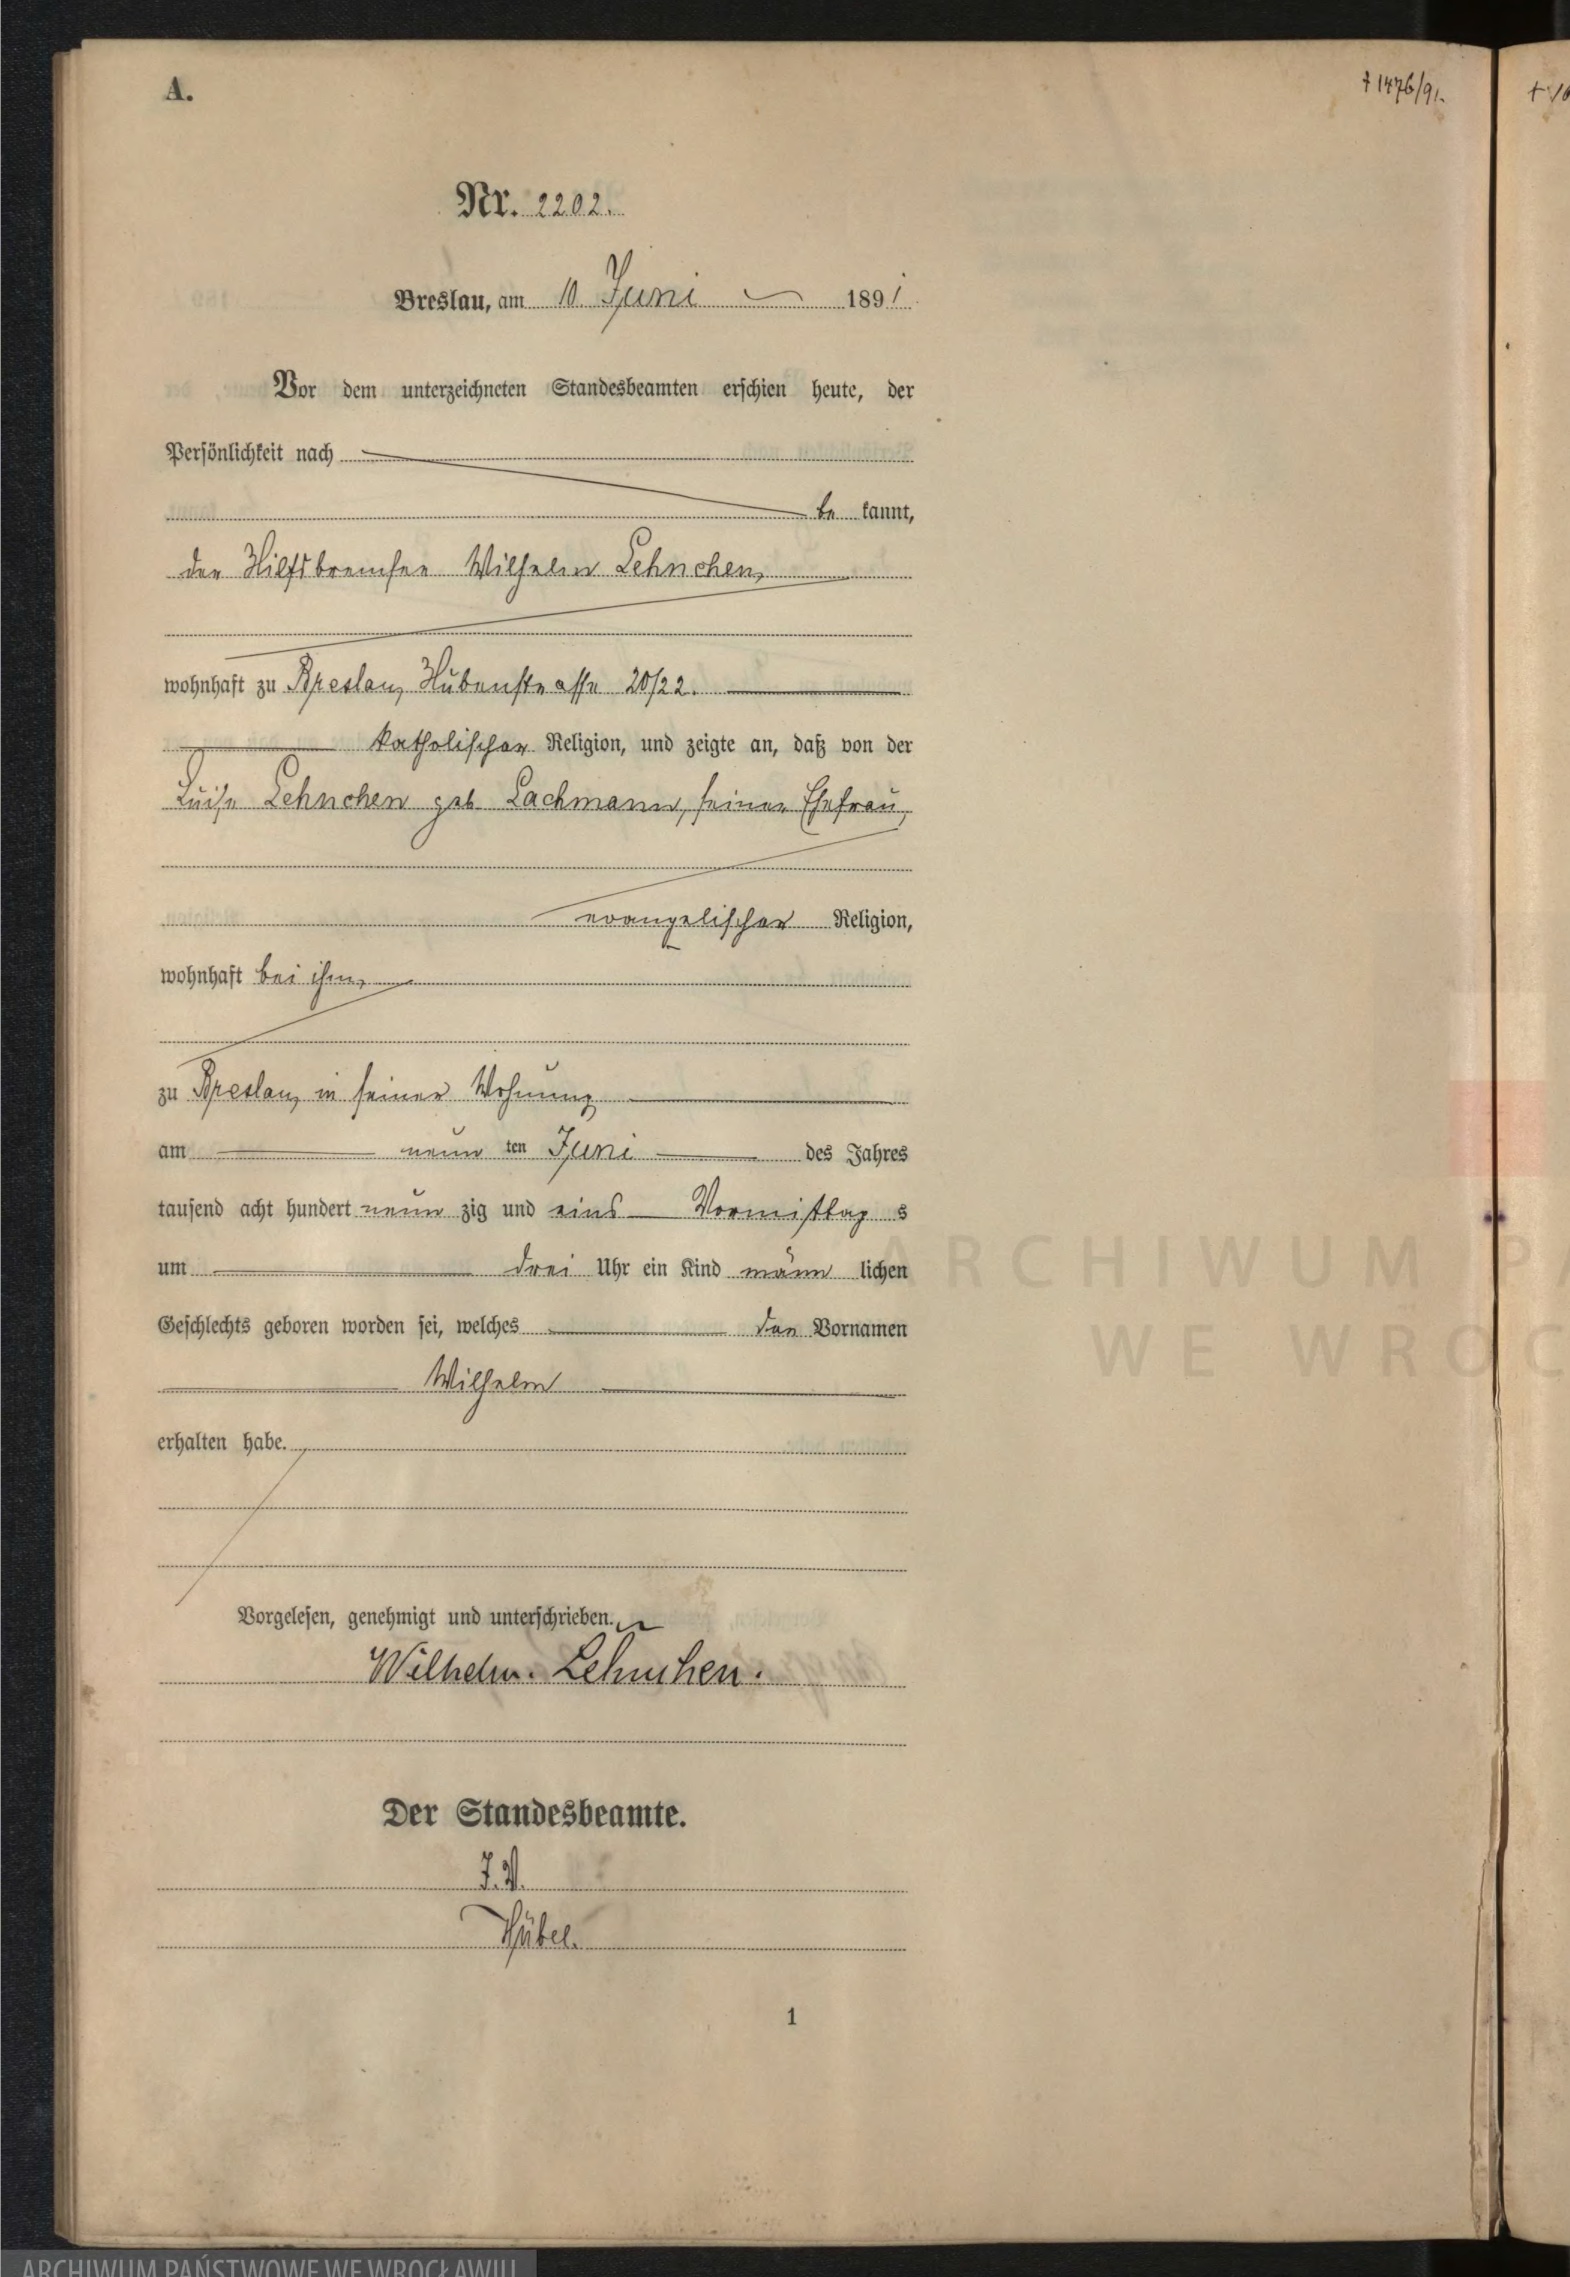 A.
† 1476/91.
Nr. 2202.
Breslau, am 10. Juni 1891.
Vor dem unterzeichneten Standesbeamten erschien heute, der
Persönlichkeit nach
be kannt,
der Hilfsbremser Wilhelm Lehnchen,
wohnhaft zu Breslau, Hubenstrasse 20/22.
katholischer Religion, und zeigte an, daß von der
Luise Lehnchen geb. Lachmann, seiner Ehefrau,
evangelischer Religion,
wohnhaft bei ihm,
zu Breslau, in seiner Wohnung
am neun ten Juni des Jahres
tausend acht hundert neun zig und eins Vormittag s
um drei Uhr ein Kind männ lichen
Geschlechts geboren worden sei, welches den Vornamen
Wilhelm
erhalten habe.
Vorgelesen, genehmigt und unterschrieben.
Wilhelm. Lehnchen.
Der Standesbeamte.
J. V.
Hübel.
1
ARCHIWUM PA
WE WROC
ARCHIWUM PAŃSTWOWE WE WROCŁAWIU